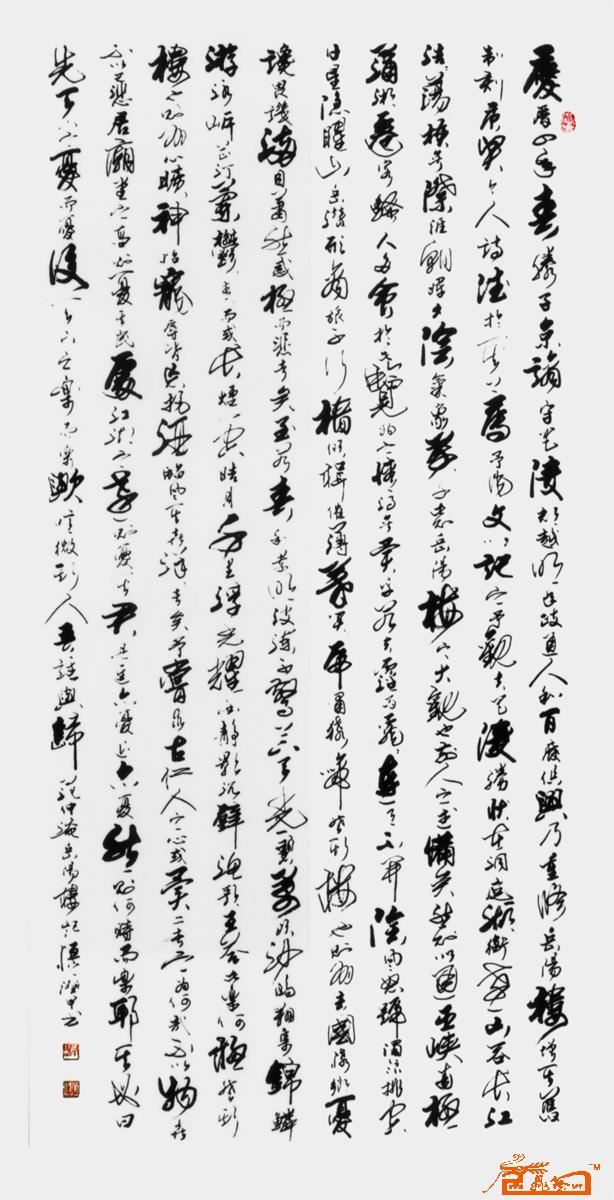 慶曆四年春滕子京謫守巴陵郡越明年政通人和百廢俱興乃重修岳陽樓增其舊
制刻唐賢今人詩賦於其上屬予作文以記之予觀夫巴陵勝狀在洞庭一湖銜遠山吞長江
浩浩蕩蕩橫無際涯朝暉夕陰氣象萬千此則岳陽樓之大觀也前人之述備矣然則北通巫峽南極
瀟湘遷客騷人多會於此覽物之情得無異乎若夫霪雨霏霏連月不開陰風怒號濁浪排空
日星隱曜山岳潛形商旅不行檣傾楫摧薄暮冥冥虎嘯猿啼登斯樓也則有去國懷鄉憂
讒畏譏滿目蕭然感極而悲者矣至若春和景明波瀾不驚上下天光一碧萬頃沙鷗翔集錦鱗
游泳岸芷汀蘭鬱鬱青青而或長煙一空皓月千里浮光耀金靜影沉璧漁歌互答此樂何極登斯
樓也則有心曠神怡寵辱皆忘把酒臨風其喜洋洋者矣嗟夫予嘗求古仁人之心或異二者之為何哉不以物喜
不以己悲居廟堂之高則憂其民處江湖之遠則憂其君是進亦憂退亦憂然則何時而樂耶其必曰
先天下之憂而憂後天下之樂而樂歟噫微斯人吾誰與歸 范仲淹岳陽樓記